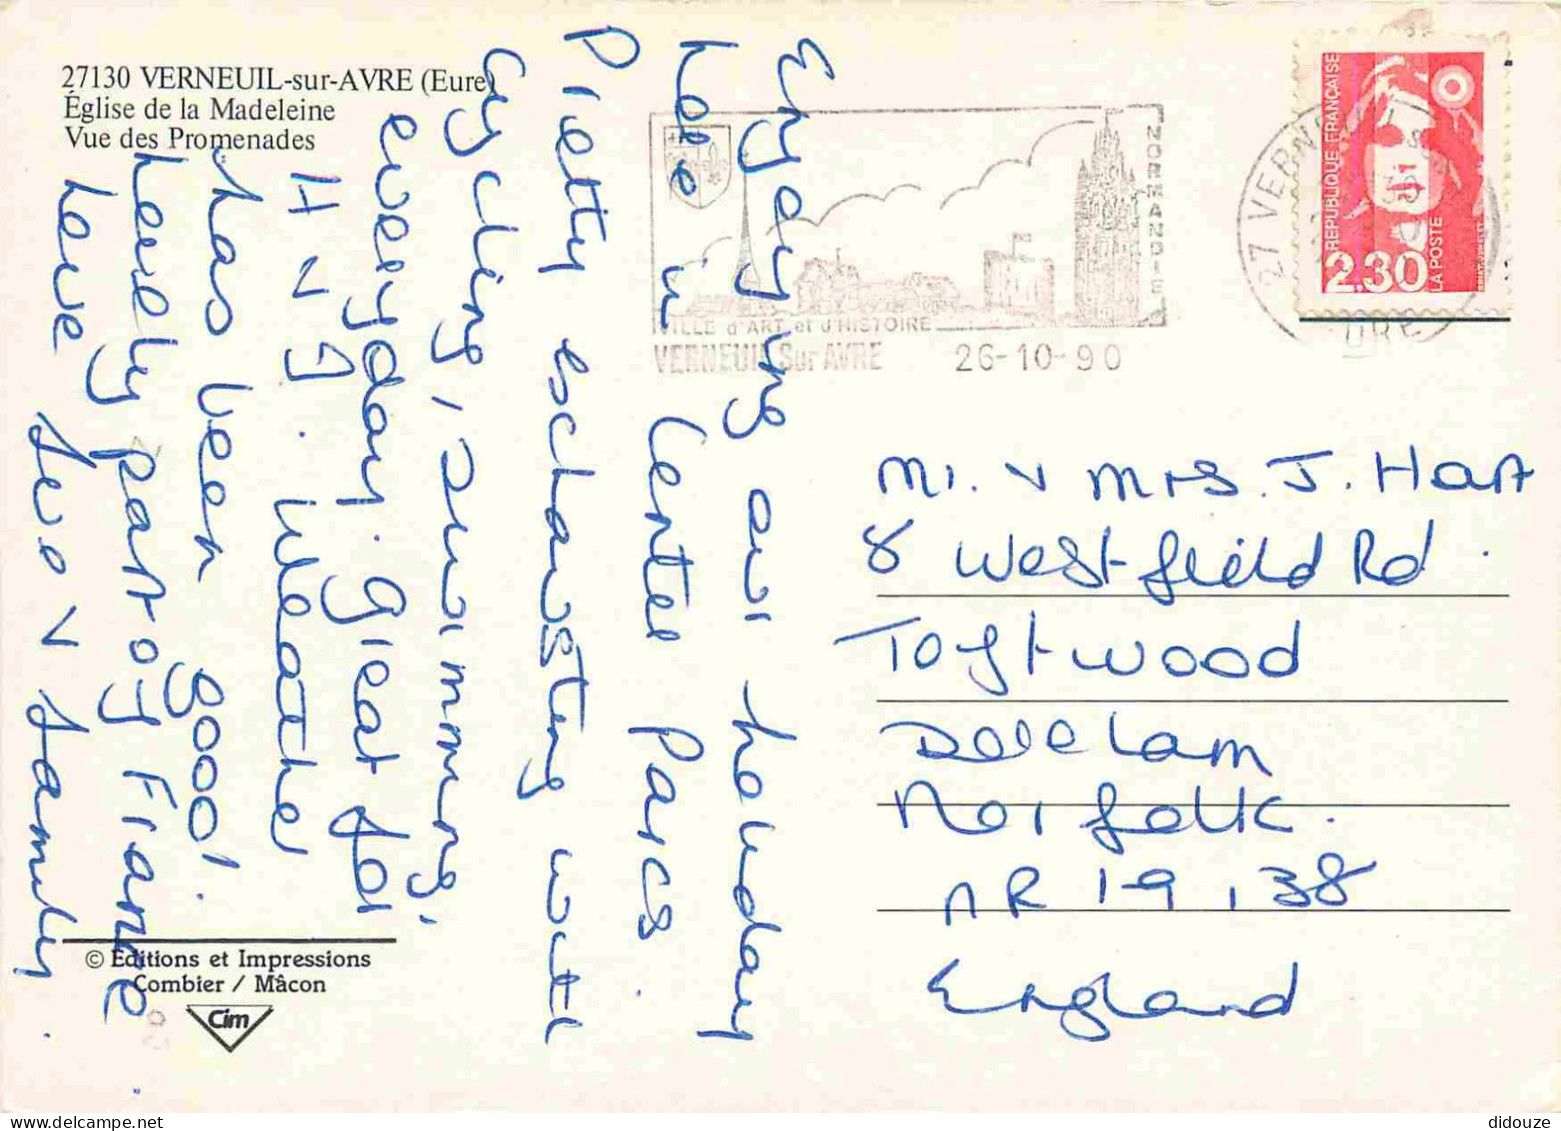 27130 VERNEUIL-sur-AVRE (Eure)
Église de la Madeleine
Vue des Promenades
Enjoying our holiday
here in Center Parcs.
Pretty exhausting with
cycling, swimming,
everyday. Great for
H v J. Weather
has been good!.
Lovely part of France.
Love Sue v family.
© Editions et Impressions
Combier / Mâcon
Cim
NORMANDIE
VILLE d'ART et d'HISTOIRE
VERNEUIL Sur AVRE 26-10-90
27 VERN
EURE
REPUBLIQUE FRANÇAISE
2.30
LA POSTE
Mr. v Mrs. J. Hart
8 Westfield Rd.
Toftwood
Dereham
Norfolk.
NR 19 138
England
didouze